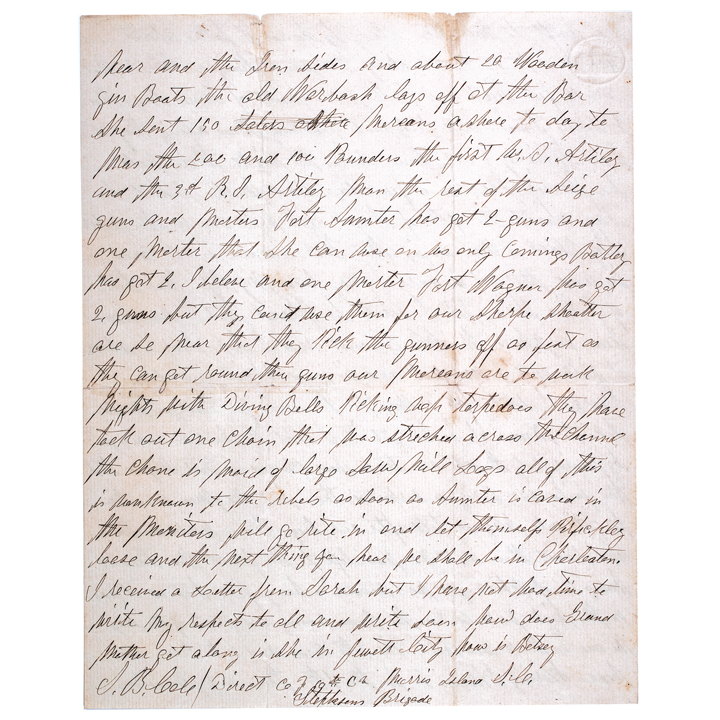 near and the Iron Sides and about 20 Wooden
gin Boats the old Warbash lays off at the Bar
She Sent 150 Moreans ashore to day to
man the 200 and 100 Pounders the first U.S. Artiley
and the 3d R.I. Artiley man the rest of the Seige
guns and Morters Fort Sumter has got 2-guns and
one Morter that She can use on us only Comings Battey
has got 2, I beleve and one Morter Fort Wagner has got
2 guns but they cand use them for our Sharpe Shooter
are so near that they Pick the gunners off as fast as
the can get round their guns our Moreans are to work
Nights with Diving Bells Picking up torpedoes they have
tock out one Chain that was streched across the Channel
the Chane is maid of large Saw Mill Logs all of this
is unknown to the rebels as soon as Sumter is caved in
the Monitors will go rite in and let themselfs
loose and the next thing you hear we shall be in Charleston
I received a Letter from Sarah but I have not had time to
write my respects to all and write soon how does Grand
Mother get along is she in Jewett City how is Betsey
S. B. Cole / Direct Co Morris Island S.C.
Stephesons Brigade